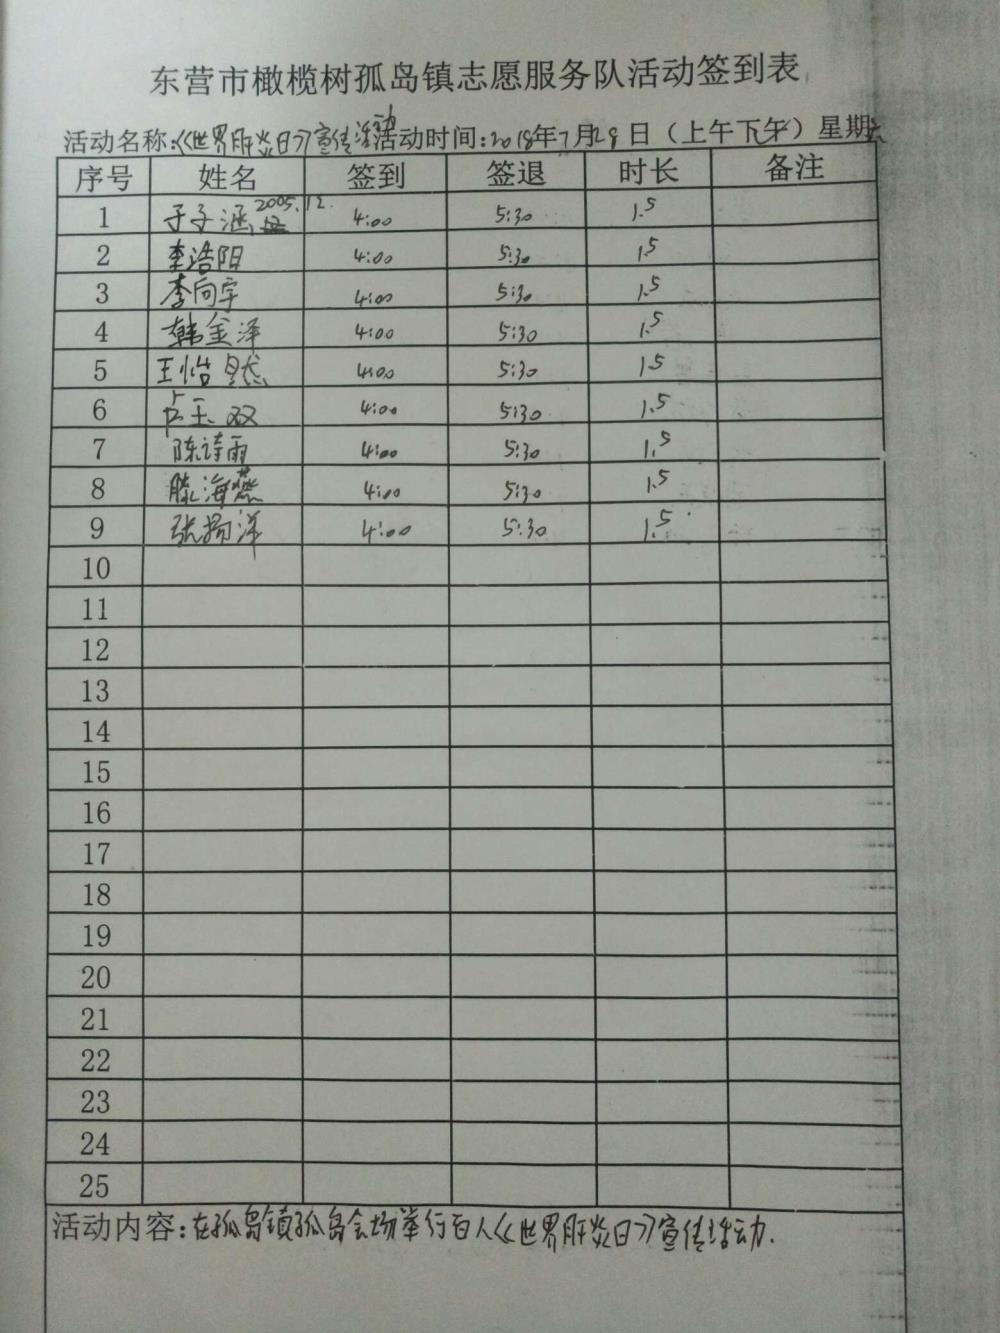 东营市橄榄树孤岛镇志愿服务队活动签到表
活动名称:《世界肝炎日》宣传活动活动时间:2018年7月28日（上午下午）星期六
序号 姓名 签到 签退 时长 备注
1 于子涵 2005.12. 4:00 5:30 1.5
2 李浩阳 4:00 5:30 1.5
3 李向宇 4:00 5:30 1.5
4 韩金泽 4:00 5:30 1.5
5 王怡 4:00 5:30 1.5
6 卢玉双 4:00 5:30 1.5
7 陈诗雨 4:00 5:30 1.5
8 滕海燕 4:00 5:30 1.5
9 张扬洋 4:00 5:30 1.5
10
11
12
13
14
15
16
17
18
19
20
21
22
23
24
25
活动内容:在孤岛镇孤岛会场举行百人《世界肝炎日》宣传活动.